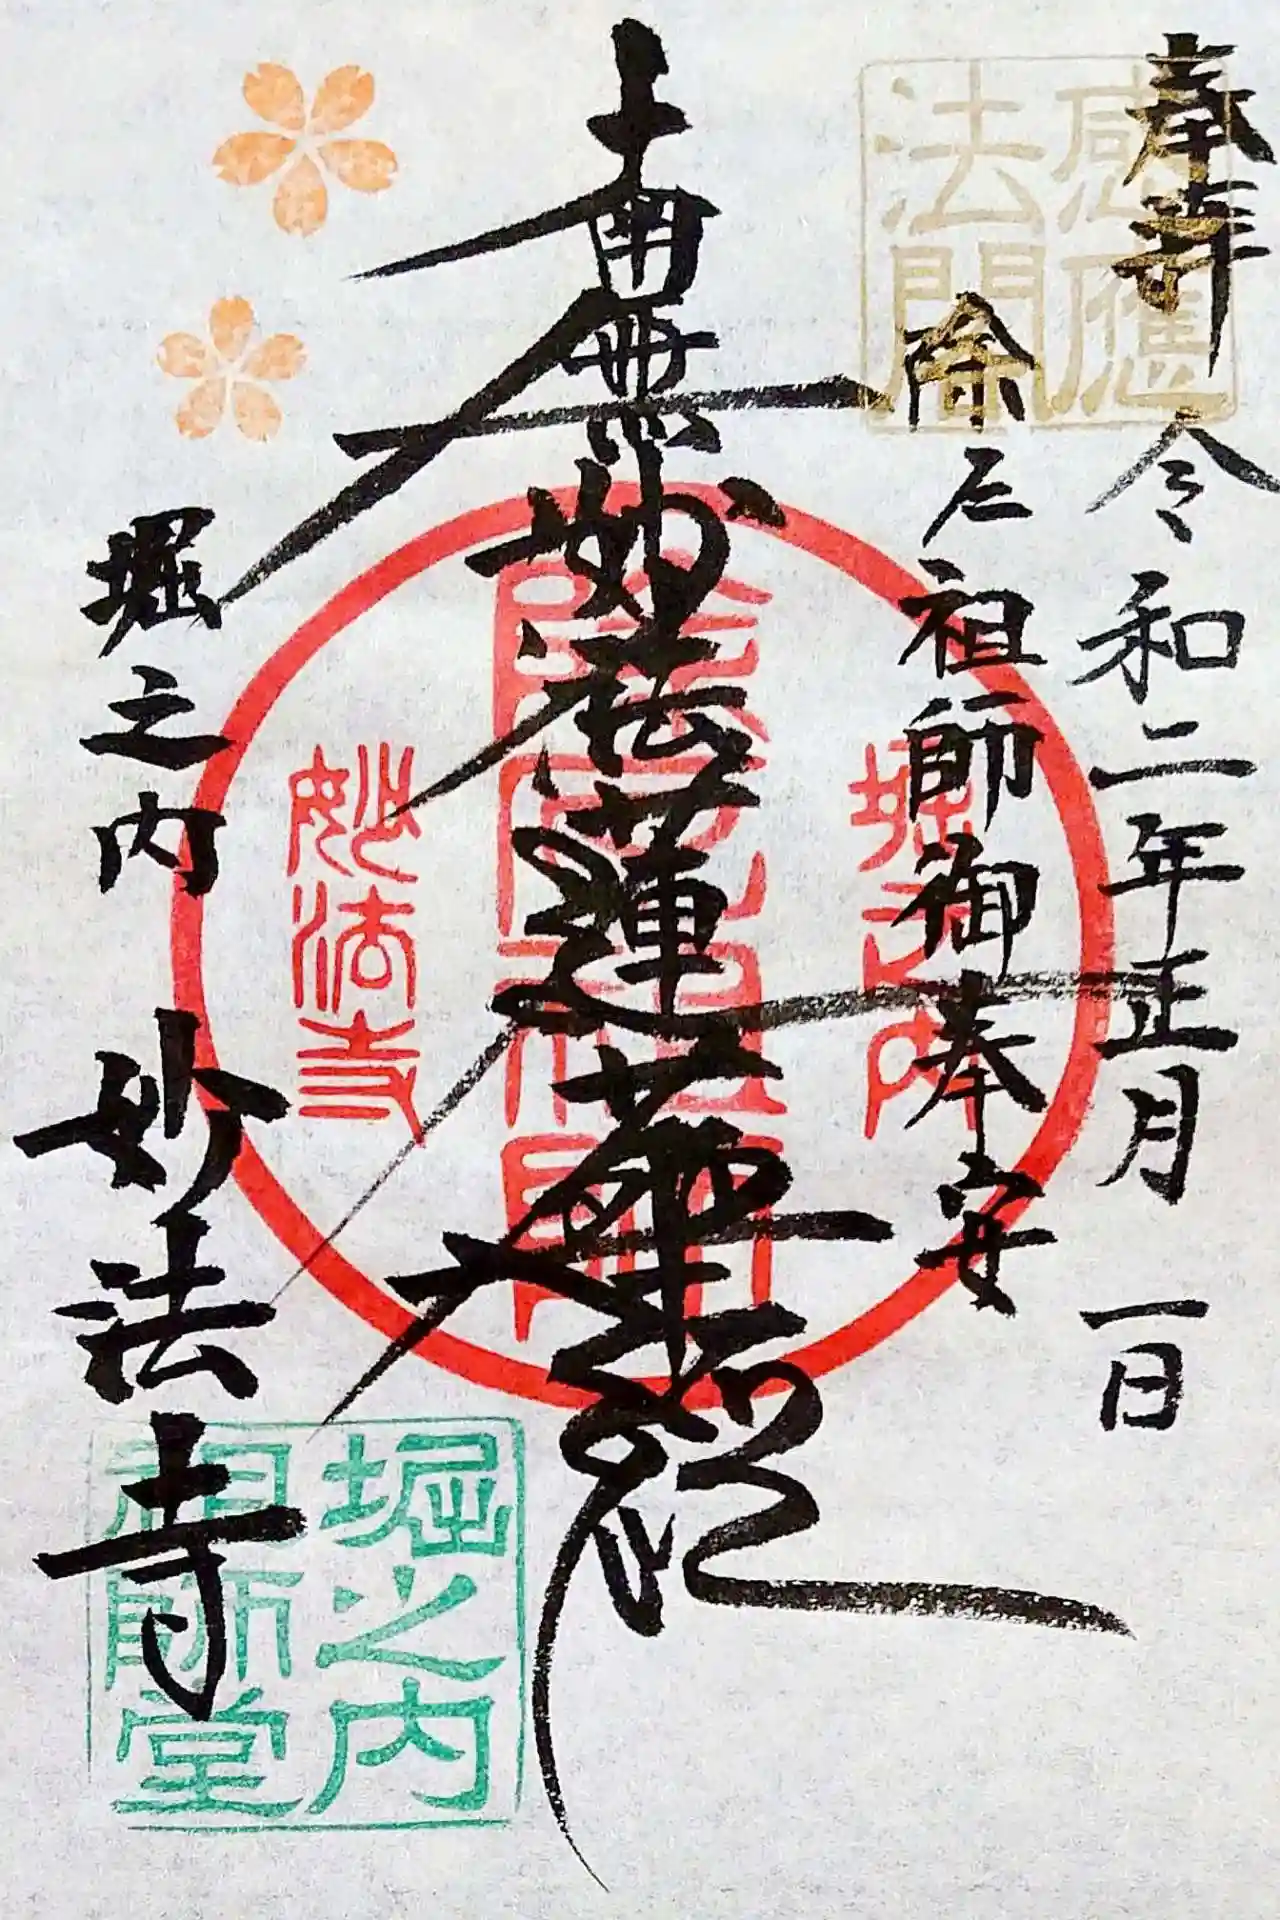 奉拝 令和二年正月一日
感應法閣
除厄祖師御奉安
堀之内
南無妙法蓮華経
除厄祖師
妙法寺
堀之内 妙法寺
堀之内
祖師堂